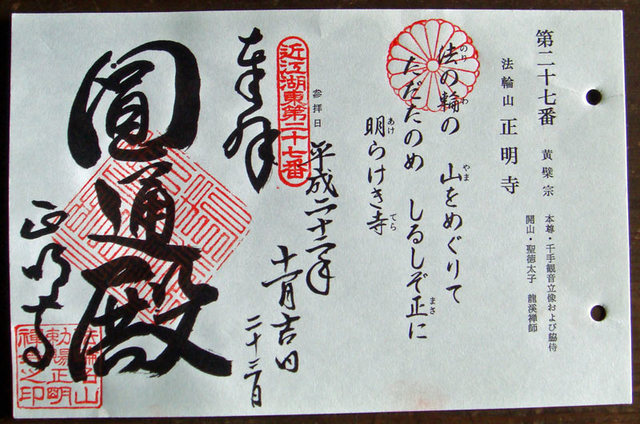 第二十七番 黄檗宗
本尊・千手観音立像および脇侍
開山・聖徳太子 龍渓禅師
法輪山 正明寺
法の輪の 山をめぐりて
ただたのめ しるしぞ正に
明らけき寺
のり
わ
やま
まさ
あけ
てら
参拝日
平成二十二年
十一月吉日
二十三日
近江湖東第二十七番
奉拝
圓通殿
正明寺